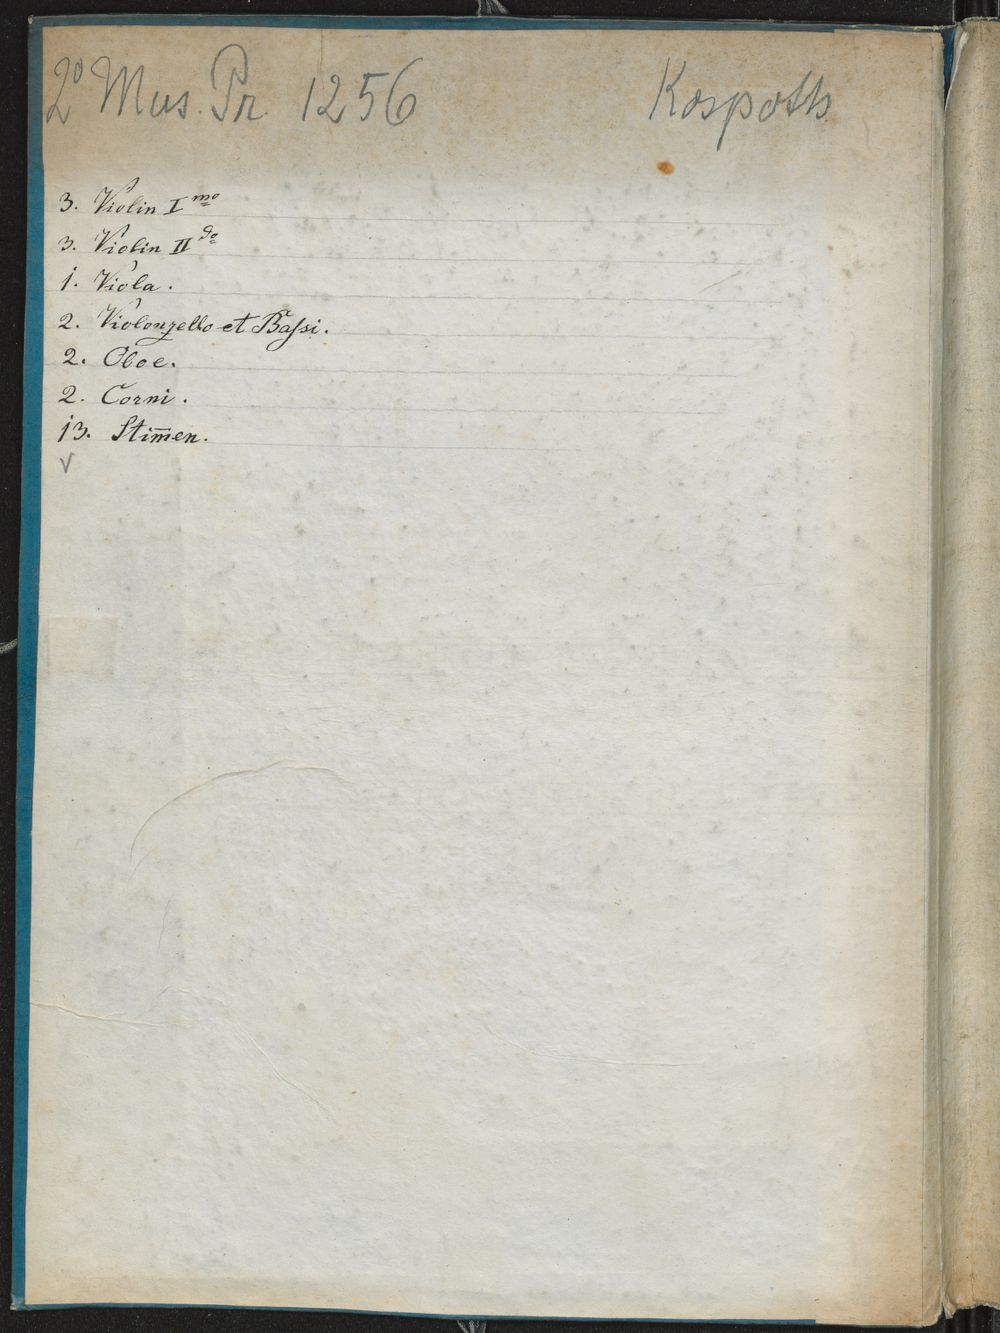 2° Mus. Pr. 1256 Kospoth
3. Violin I mo
3. Violin II do
1. Viola.
2. Violonzello et Bassi.
2. Oboe.
2. Corni.
13. Stim̄en.